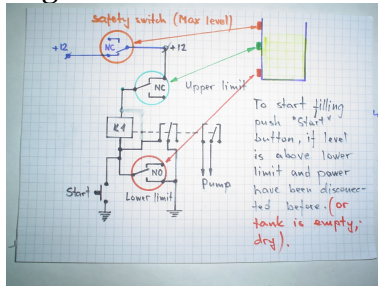 safety switch (Max level)
+12
NC
+12
NC
Upper limit
K1
NO
Pump
Start
Lower limit
To start filling
push "Start"
button, if level
is above lower
limit and power
have been disconec-
ted before. (or
tank is empty,
dry).